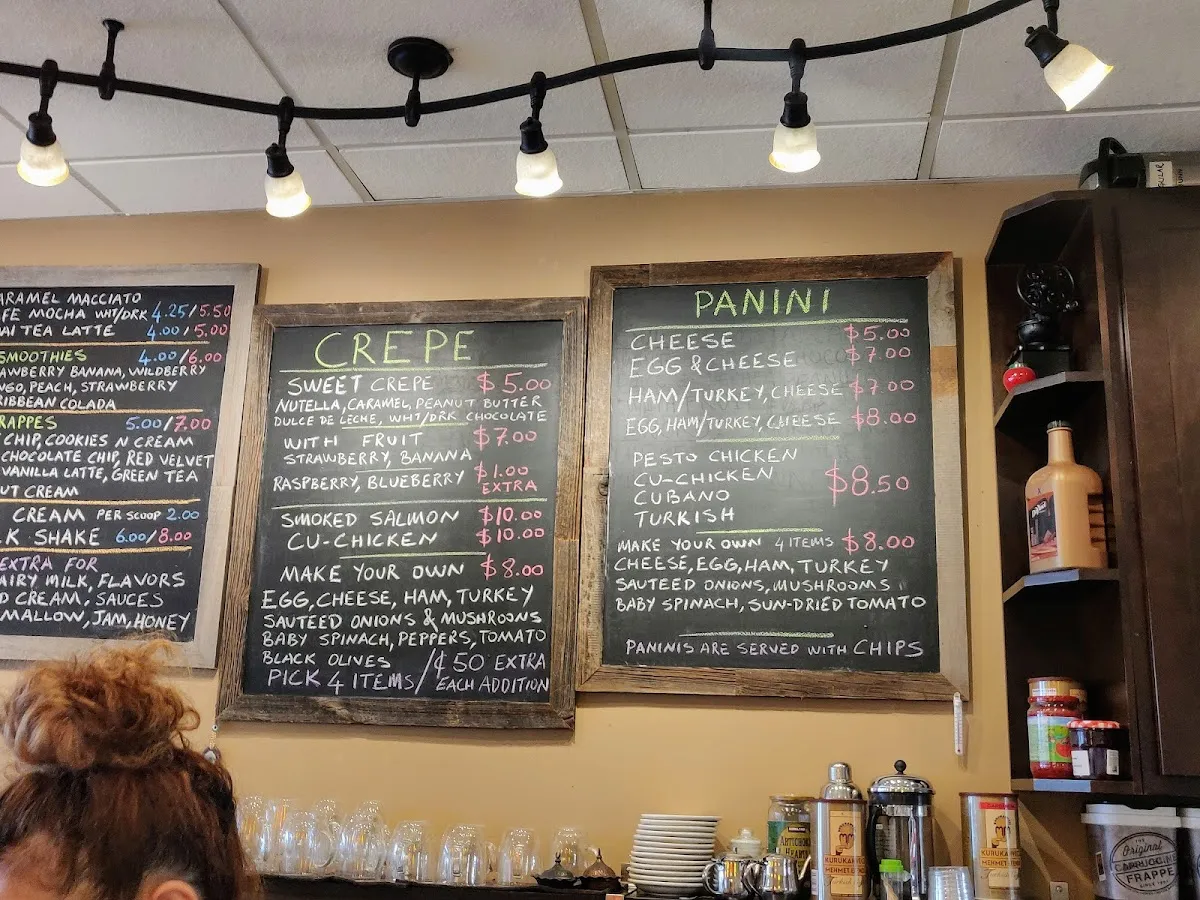 MACCIATO
MOCHA WHT/DRK 4.25/5.50
TEA LATTE 4.00/5.00
SMOOTHIES 4.00/6.00
BANANA, WILDBERRY
PEACH, STRAWBERRY
COLADA
5.00/7.00
CHIP, COOKIES N CREAM
CHOCOLATE CHIP, RED VELVET
VANILLA LATTE, GREEN TEA
CREAM
CREAM PER SCOOP 2.00
SHAKE 6.00/8.00
EXTRA FOR
MILK, FLAVORS
CREAM, SAUCES
MALLOW, JAM, HONEY
CREPE
SWEET CREPE $5.00
NUTELLA, CARAMEL, PEANUT BUTTER
DULCE DE LECHE, WHT/DRK CHOCOLATE
WITH FRUIT $7.00
STRAWBERRY, BANANA
RASPBERRY, BLUEBERRY $1.00
EXTRA
SMOKED SALMON $10.00
CU-CHICKEN $10.00
MAKE YOUR OWN $8.00
EGG, CHEESE, HAM, TURKEY
SAUTEED ONIONS & MUSHROOMS
BABY SPINACH, PEPPERS, TOMATO
BLACK OLIVES
PICK 4 ITEMS / ¢50 EXTRA
EACH ADDITION
PANINI
CHEESE $5.00
EGG & CHEESE $7.00
HAM/TURKEY, CHEESE $7.00
EGG, HAM/TURKEY, CHEESE $8.00
PESTO CHICKEN
CU-CHICKEN
CUBANO
TURKISH
$8.50
MAKE YOUR OWN 4 ITEMS $8.00
CHEESE, EGG, HAM, TURKEY
SAUTEED ONIONS, MUSHROOMS
BABY SPINACH, SUN-DRIED TOMATO
PANINIS ARE SERVED WITH CHIPS
KURUKAHVECİ
MEHMET EFENDİ
The
Original
CAPPUCCINO
FRAPPE